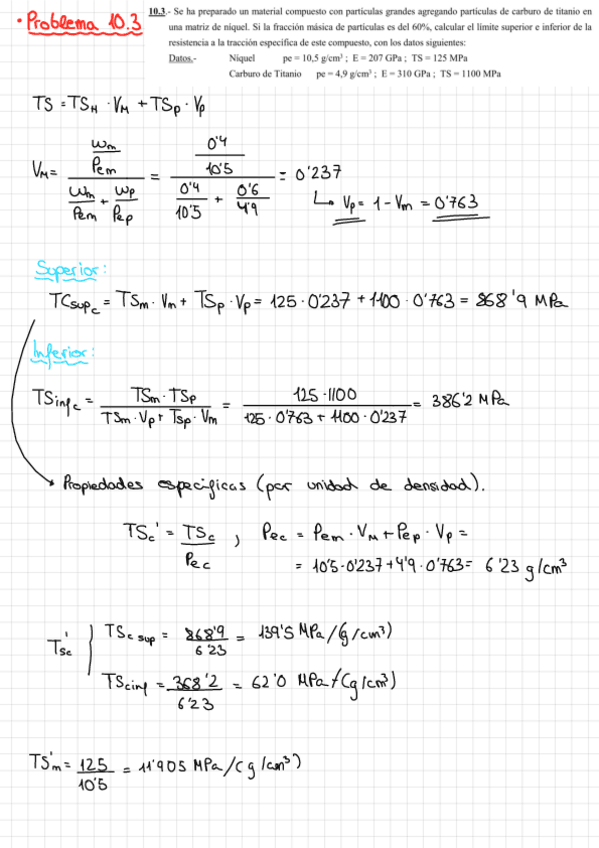 • Problema 10.3
10.3.- Se ha preparado un material compuesto con partículas grandes agregando partículas de carburo de titanio en
una matriz de níquel. Si la fracción másica de partículas es del 60%, calcular el límite superior e inferior de la
resistencia a la tracción específica de este compuesto, con los datos siguientes:
Datos.- Níquel pe = 10,5 g/cm³ ; E = 207 GPa ; TS = 125 MPa
Carburo de Titanio pe = 4,9 g/cm³ ; E = 310 GPa ; TS = 1100 MPa
TS = TS_M · V_M + TS_p · V_p
V_M = (w_m / Pe_m) / (w_m / Pe_m + w_p / Pe_p) = (0'4 / 10'5) / (0'4 / 10'5 + 0'6 / 4'9) = 0'237
↳ V_p = 1 - V_m = 0'763
Superior:
TC_sup_c = TS_m · V_m + TS_p · V_p = 125 · 0'237 + 1100 · 0'763 = 868'9 MPa
Inferior:
TS_inf_c = (TS_m · TS_p) / (TS_m · V_p + TS_p · V_m) = (125 · 1100) / (125 · 0'763 + 1100 · 0'237) = 386'2 MPa
Propiedades especificas (por unidad de densidad).
TS_c' = TS_c / Pe_c , Pe_c = Pe_m · V_M + Pe_p · V_p =
= 10'5 · 0'237 + 4'9 · 0'763 = 6'23 g/cm³
T_sc' { TS_c sup = 868'9 / 6'23 = 139'5 MPa/(g/cm³)
TS_c inf = 368'2 / 6'23 = 62'0 MPa/(g/cm³)
TS'_m = 125 / 10'5 = 11'905 MPa/(g/cm³)